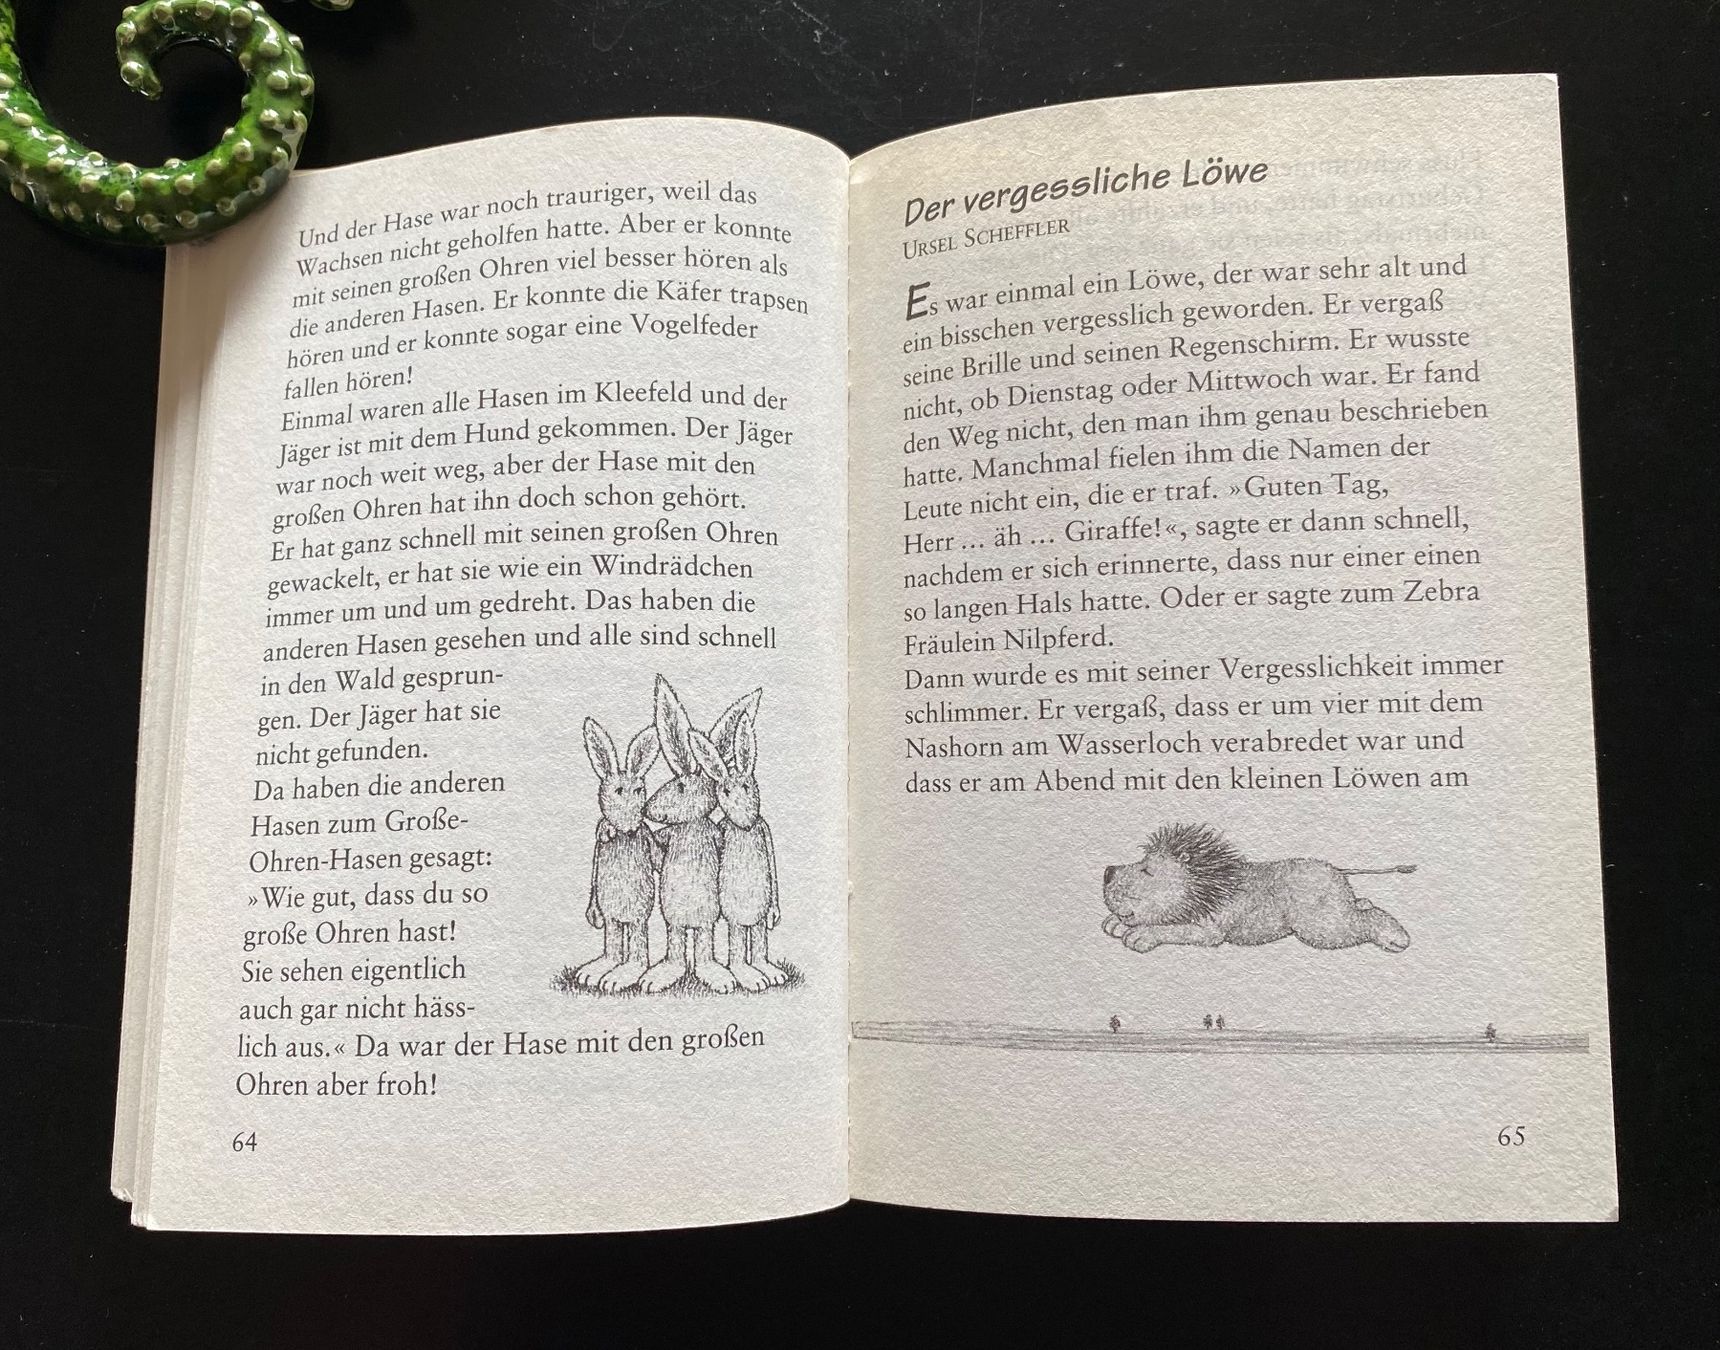 Und der Hase war noch trauriger, weil das
Wachsen nicht geholfen hatte. Aber er konnte
mit seinen großen Ohren viel besser hören als
die anderen Hasen. Er konnte die Käfer trapsen
hören und er konnte sogar eine Vogelfeder
fallen hören!
Einmal waren alle Hasen im Kleefeld und der
Jäger ist mit dem Hund gekommen. Der Jäger
war noch weit weg, aber der Hase mit den
großen Ohren hat ihn doch schon gehört.
Er hat ganz schnell mit seinen großen Ohren
gewackelt, er hat sie wie ein Windrädchen
immer um und um gedreht. Das haben die
anderen Hasen gesehen und alle sind schnell
in den Wald gesprun-
gen. Der Jäger hat sie
nicht gefunden.
Da haben die anderen
Hasen zum Große-
Ohren-Hasen gesagt:
»Wie gut, dass du so
große Ohren hast!
Sie sehen eigentlich
auch gar nicht häss-
lich aus.« Da war der Hase mit den großen
Ohren aber froh!
64
Der vergessliche Löwe
URSEL SCHEFFLER
Es war einmal ein Löwe, der war sehr alt und
ein bisschen vergesslich geworden. Er vergaß
seine Brille und seinen Regenschirm. Er wusste
nicht, ob Dienstag oder Mittwoch war. Er fand
den Weg nicht, den man ihm genau beschrieben
hatte. Manchmal fielen ihm die Namen der
Leute nicht ein, die er traf. »Guten Tag,
Herr ... äh ... Giraffe!«, sagte er dann schnell,
nachdem er sich erinnerte, dass nur einer einen
so langen Hals hatte. Oder er sagte zum Zebra
Fräulein Nilpferd.
Dann wurde es mit seiner Vergesslichkeit immer
schlimmer. Er vergaß, dass er um vier mit dem
Nashorn am Wasserloch verabredet war und
dass er am Abend mit den kleinen Löwen am
65